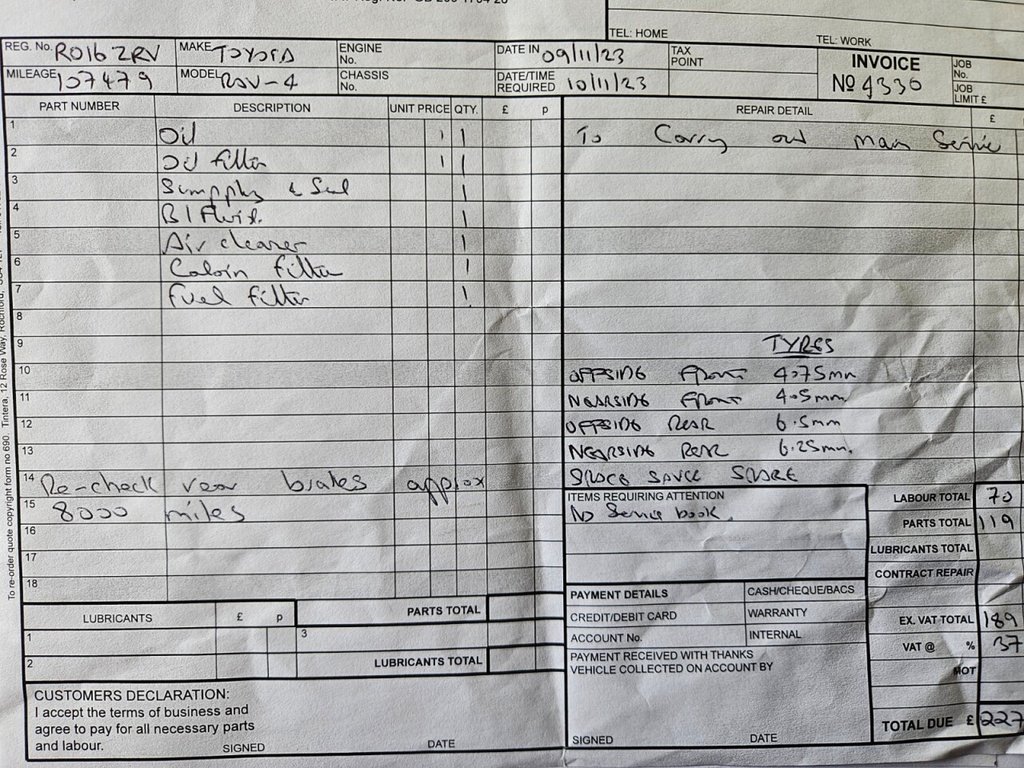 TEL: HOME
TEL: WORK
REG. No. RO16 ZRV
MAKE TOYOTA
ENGINE No.
DATE IN 09/11/23
TAX POINT
INVOICE
No 4330
JOB No.
MILEAGE 107479
MODEL RAV-4
CHASSIS No.
DATE/TIME REQUIRED 10/11/23
JOB LIMIT £
PART NUMBER DESCRIPTION UNIT PRICE QTY. £ p
1 Oil 1 1
2 Oil filter 1 1
3 Sump plug & Seal 1
4 B/Fluid. 1
5 Air cleaner 1
6 Cabin filter 1
7 Fuel filter 1
8
9
10
11
12
13
14 Re-check rear brakes approx
15 8000 miles
16
17
18
REPAIR DETAIL £
To Carry out main Service
TYRES
OFFSIDE FRONT 4.75mm
NEARSIDE FRONT 4.5mm
OFFSIDE REAR 6.5mm
NEARSIDE REAR 6.25mm.
SPACE SAVER SPARE
ITEMS REQUIRING ATTENTION
No Service book.
LABOUR TOTAL 70
PARTS TOTAL 119
LUBRICANTS TOTAL
CONTRACT REPAIR
EX. VAT TOTAL 189
VAT @ % 37
MOT
TOTAL DUE £ 227
PAYMENT DETAILS
CASH/CHEQUE/BACS
CREDIT/DEBIT CARD
WARRANTY
ACCOUNT No.
INTERNAL
PAYMENT RECEIVED WITH THANKS
VEHICLE COLLECTED ON ACCOUNT BY
SIGNED DATE
LUBRICANTS £ p
PARTS TOTAL
1 3
2 LUBRICANTS TOTAL
CUSTOMERS DECLARATION:
I accept the terms of business and
agree to pay for all necessary parts
and labour.
SIGNED DATE
To re-order quote copyright form no 690. Tintera, 12 Rose Way, Rochford,